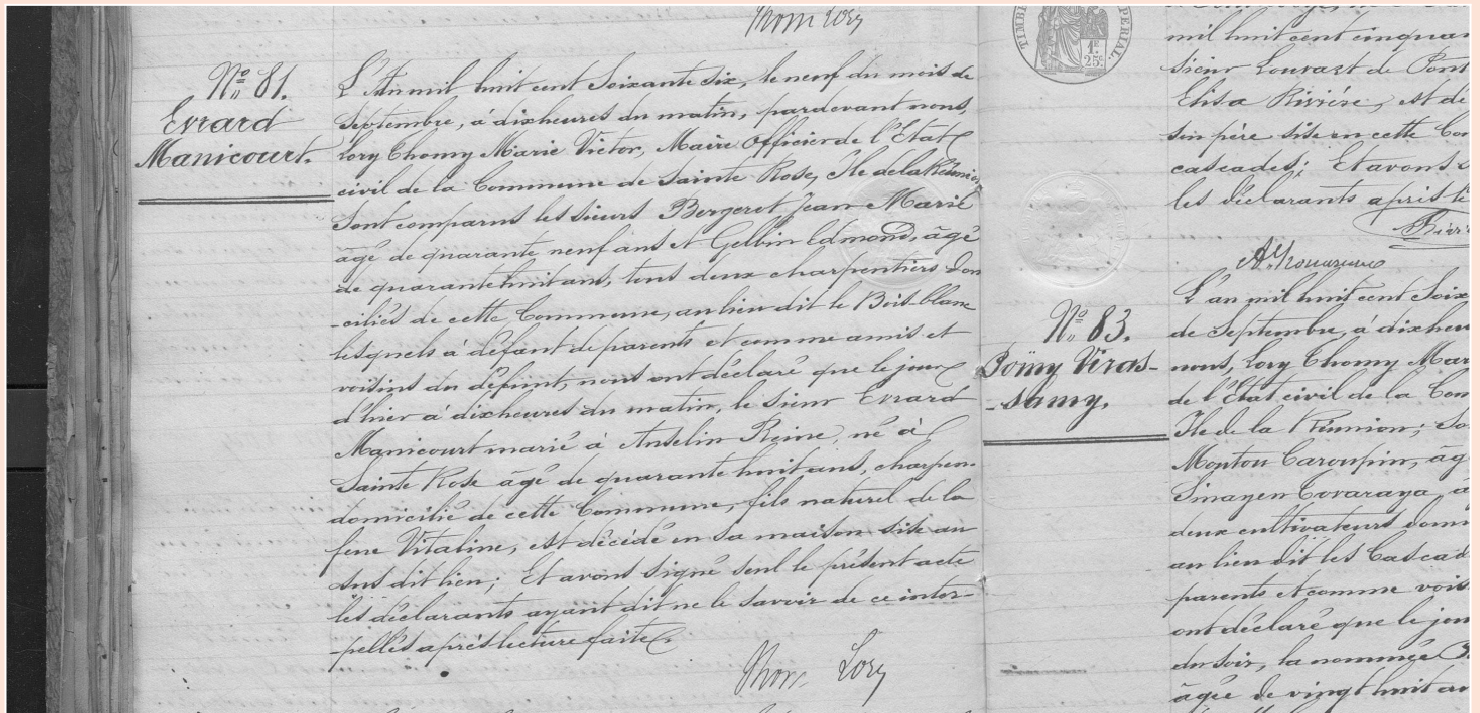 Thom Lory
N° 81.
Evrard
Manicourt.
L'An mil huit cent Soixante Six, le neuf du mois de
Septembre, à dix heures du matin, pardevant nous,
Lory Thomy Marie Victor, Maire Officier de l'Etat
civil de la Commune de Sainte Rose, Île de la Réunion
Sont comparus les sieurs Bergerot Jean Marie
âgé de quarante neuf ans et Gelbin Edmond, âgé
de quarante huit ans, tous deux charpentiers dom
-ciliés de cette Commune, au lieu dit le Bois-blanc
lesquels à défaut de parents et comme amis et
voisins du défunt, nous ont déclaré que le jour
d'hier à dix heures du matin, le sieur Evrard
Manicourt marié à Anselin Reine, né à
Sainte Rose âgé de quarante huit ans, charpen-
domicilié de cette Commune, fils naturel de la
feue Vitaline, est décédé en sa maison sise au
sus dit lieu; Et avons signé seul le présent acte
les déclarants ayant dit ne le savoir de ce inter-
-pellés après lecture faite.
Thom Lory
TIMBRE PERIAL.
1F
25c
mil huit cent cinquan
sieur Louvart de Pont
Elisa Rivière, et de
son père sise en cette Com
cascades; Et avons s
les déclarants après le
Riviè
N° 83.
Pomy Viras-
-samy.
L'an mil huit cent Soix
de Septembre, à dix heu
nous, Lory Thomy Mar
de l'Etat civil de la Com
Île de la Réunion; So
Moutou Caroupin, âg
Sinayen Covaraya, â
deux cultivateurs domi
au lieu dit les Cascad
parents et comme vois
ont déclaré que le jou
du soir, la nommée
âgée de vingt huit an